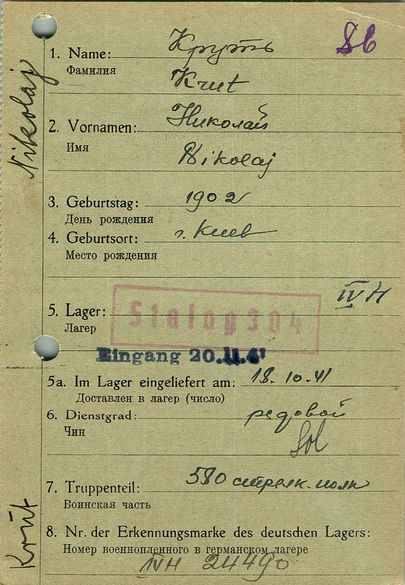 86
1. Name: Круть
Фамилия
Krut
2. Vornamen: Николай
Имя
Nikolaj
3. Geburtstag: 1902
День рождения
4. Geburtsort: г. Киев
Место рождения
IVH
5. Lager: Stalag 304
Лагер
Eingang 20.11.41
5a. Im Lager eingeliefert am: 18.10.41
Доставлен в лагер (число)
6. Dienstgrad: редовой
Чин
Sol
7. Truppenteil: 580 стрелк. полк
Воинская часть
8. Nr. der Erkennungsmarke des deutschen Lagers:
Номер военнопленного в германском лагере
IVH 24490
Krut Nikolaj